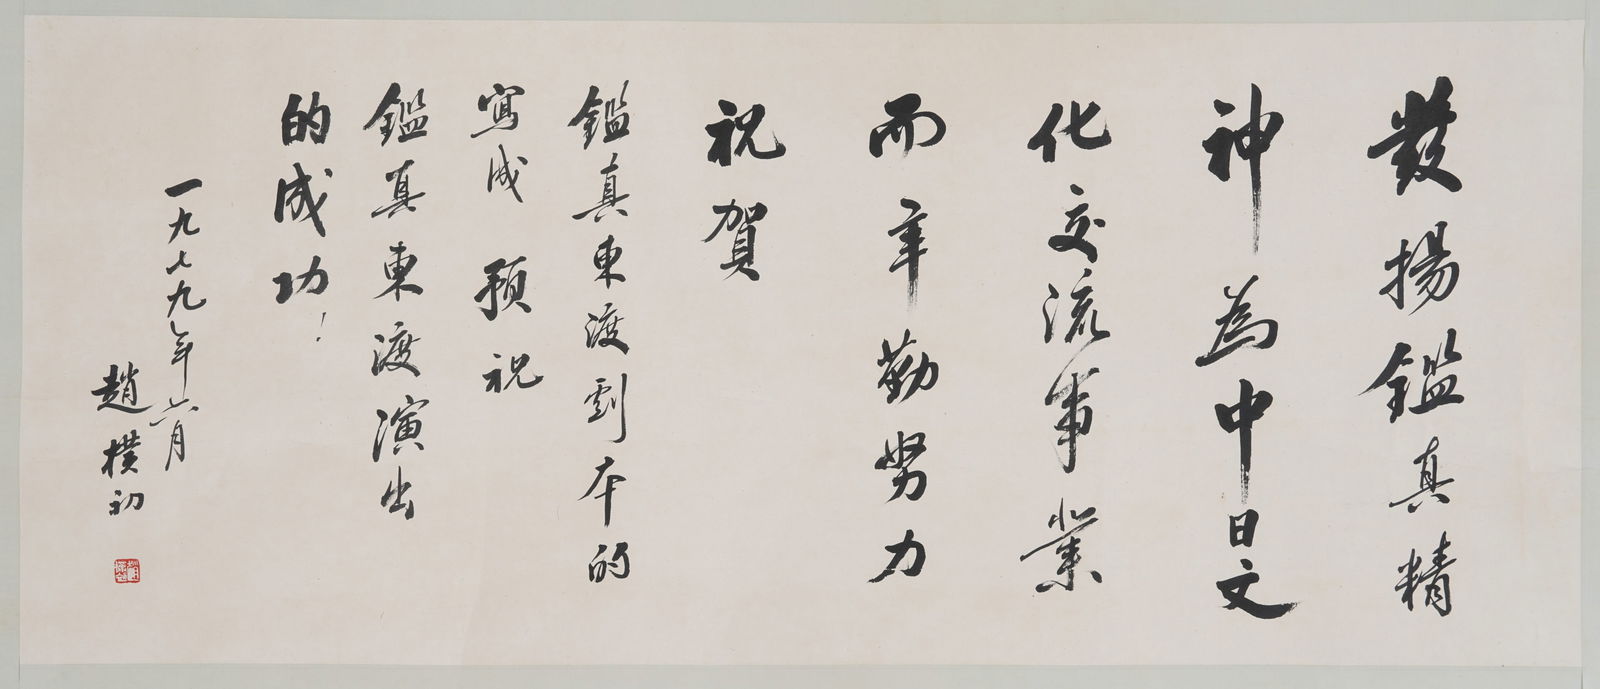 發揚鑑真精
神為中日文
化交流事業
而辛勤努力
祝賀
鑑真東渡劇本的
寫成 預祝
鑑真東渡演出
的成功！
一九七九年六月
趙樸初